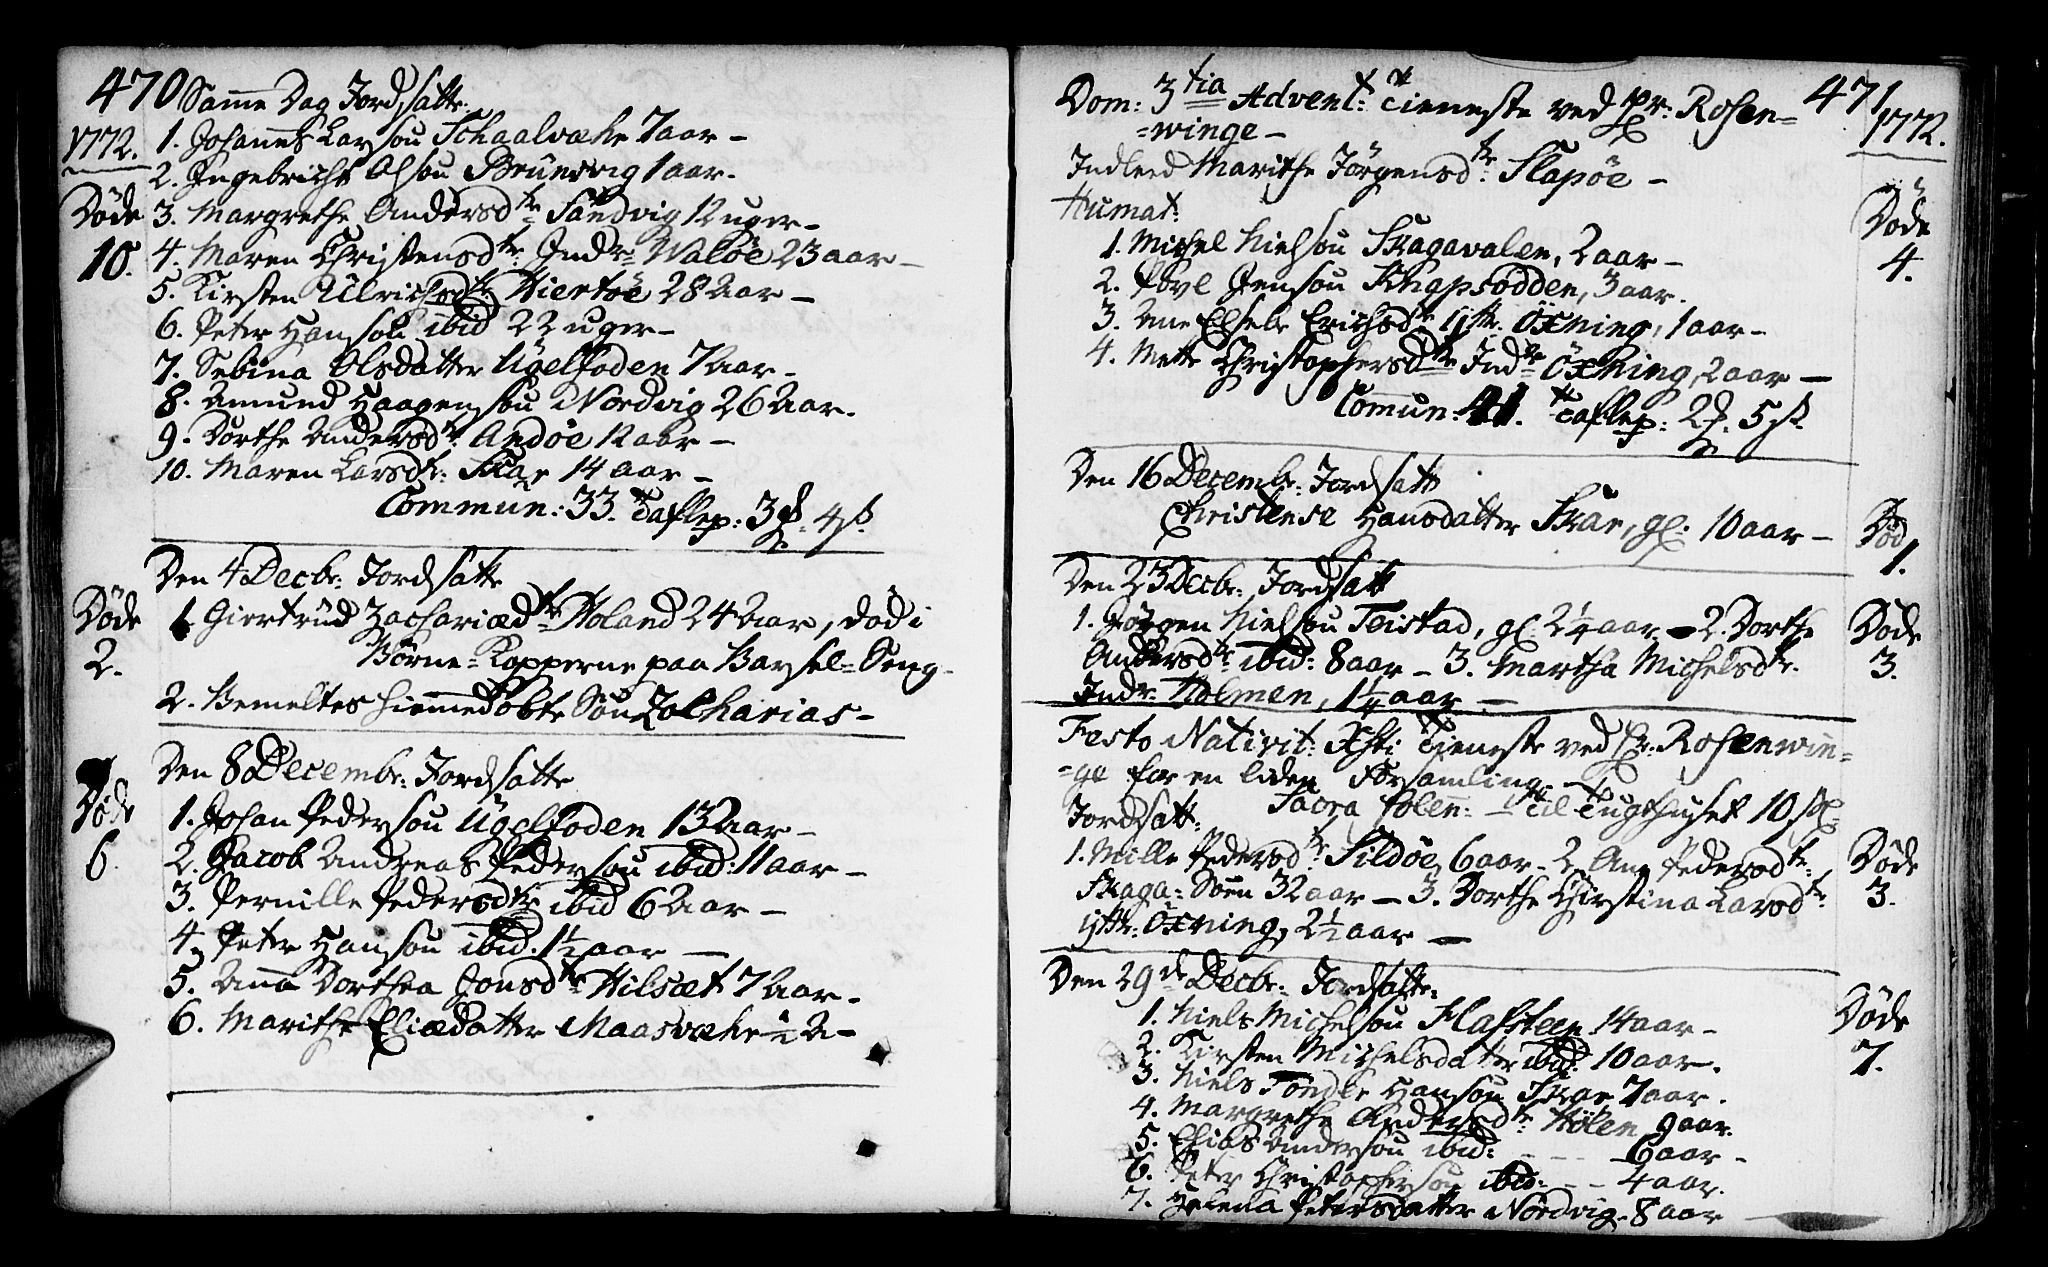 470 Samme Dag Jordsatte.
1772.
1. Johannes Larsøn Schaalvæhr 7 aar –
2. Ingebricht Olsøn Brunsvig 1 aar.
Døde
3. Margrethe Andersdtr Sandvig 12 uger –
10.
4. Maren Christensdtr: Indr: Waløe 23 aar –
5. Kirsten Ulrichsdtr Hiertøe 28 Aar –
6. Peter Hansøn ibid 22 uger –
7. Sebina Olsdatter Ugelfoden 7 Aar –
8. Amund Haagensøn Nordvig 26 Aar.
9. Dorthe Andersdtr: Andøe 12 aar –
10. Maren Larsdtr: Skar 14 aar –
Commun: 33. Taflep: 3 4 s
Den 4 Decbr: Jordsatte
Døde
2.
1 Giertrud Zachariædtr Holand 24 Aar, død i
Børne=Kopperne paa Barsel=Seng
2. Bemeltes hiemmedøbte Søn Zacharias –
Den 8 Decembr: Jordsatte
Døde
6.
1. Johan Pedersøn Ugelfoden 13 Aar –
2. Jacob Andreas Pedersøn ibid: 11 aar –
3. Pernille Pedersdtr ibid 6 Aar –
4. Peter Hansøn ibid. 1½ aar –
5. Anna Dorthea Jonsdtr Hilsæt 7 Aar –
6. Marithe Eliædatter Maasvæhr ½ A –
471
1772.
Dom: 3tia Advent: Tieneste ved Hr: Rosen=
=winge –
Indleed Marithe Jørgensdtr: Slapøe –
Humat:
Døde
4.
1. Michel Nielsøn Skagavalen, 2 aar –
2. Povl Jensøn Knapsodden, 3 aar.
3. Ane Elsebe Erichsdtr ytr. Öxning, 1 aar –
4. Mette Christophersdtr Indr Öxning, 2 aar –
Commun: 41. Taflep: 2 5 s
Den 16 Decembr: Jordsatt
Christense Hansdatter Skar, gl. 10 aar –
Død
1.
Den 23 Decbr: Jordsatt
1. Jørgen Nielsøn Teistad, gl. 2¼ aar – 2. Dorthe
Andersdtr ibid: 8 aar – 3. Martha Michelsdtr.
Indr: Holmen, 1¼ aar –
Døde
3.
Festo Nativit: Xsti Tieneste ved Hr: Rosenwin=
=ge for en liden Forsamling –
Sacra solen: – Til Tugthuset 10
Jordsatt:
1. Mille Pedersdtr Sildøe, 6 aar – 2. Ane Pedersdtr:
Skaga=Søen 32 aar – 3. Dorthe Christina Larsdtr
ytr: Öxning, 2½ aar –
Døde
3.
Den 29de Decbr: Jordsatte:
Døde
7.
1. Niels Michelsøn Flafsteen 14 aar –
2. Kirsten Michelsdatter ibid: 10 aar.
3. Niels Hansøn Skar 7 aar.
4. Margrethe Andersdtr: Hølen 9 aar.
5. Elias Andersøn ibid: – – – 6 aar –
6. Peter Christophersøn ibid: – – 4 aar.
7. Helena Petersdatter Nordvig. 8 aar